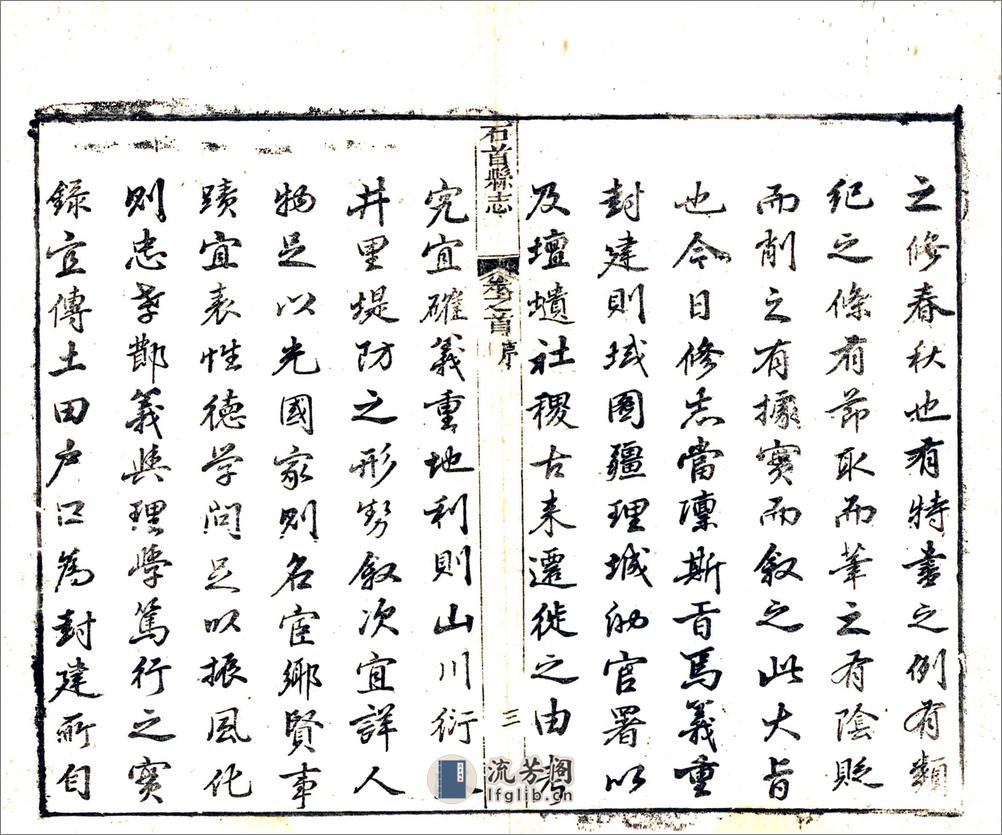 之修春秋也有特書之例有類
紀之條有節取而筆之有陰貶
而削之有據實而叙之此大旨
也今日修志當凜斯旨焉義重
封建則域圉疆理城池官署以
及壇壝社稷古来遷徙之由考
石首縣志
卷之首
序
三
究宜確義重地利則山川衍
井里堤防之形勢叙次宜詳人
物足以光國家則名宦鄉賢事
蹟宜表性德学問足以振風化
則忠孝節義與理學篤行之實
錄宜傳土田户口為封建所自
流芳阁
lfglib.cn